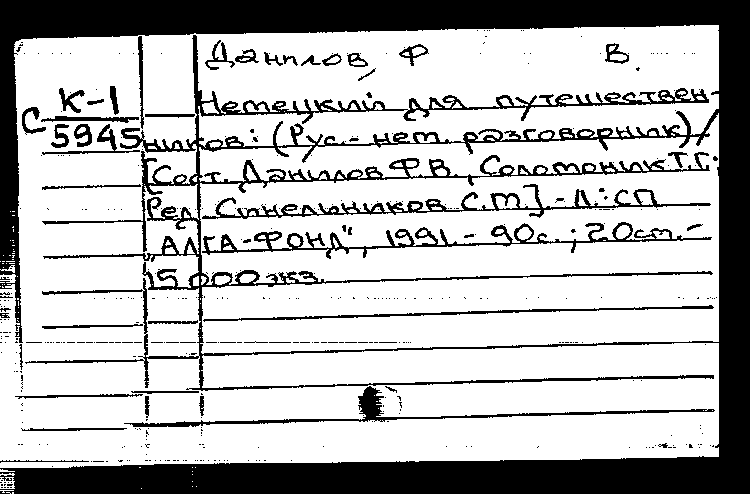 Данилов, Ф В.
С К-1 Немецкий для путешествен-
5945 ников: (Рус.- нем. разговорник) /
[Сост. Данилов Ф.В., Соломоник Т.Г.;
Ред. Синельников С.М.]. - Л.: СП
"АЛГА-ФОНД", 1991. - 90с.; 20ст. -
15 000 экз.